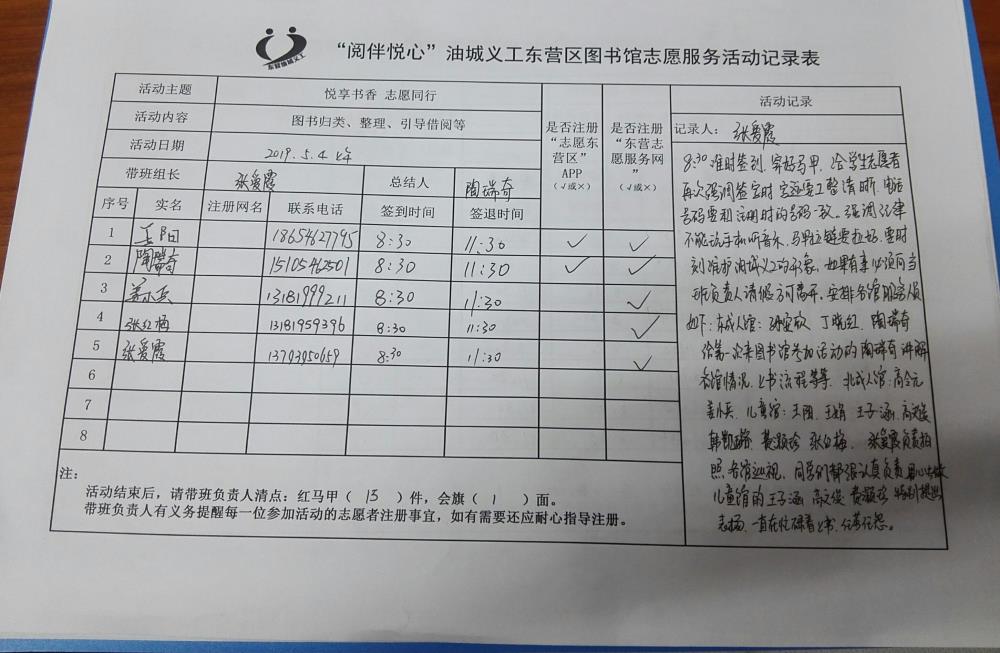 东营油城义工
“阅伴悦心”油城义工东营区图书馆志愿服务活动记录表
活动主题 悦享书香 志愿同行
活动内容 图书归类、整理、引导借阅等
活动日期 2019.5.4 上午
带班组长 张爱霞 总结人 陶瑞奇
是否注册“志愿东营区”APP（√或×）
是否注册“东营志愿服务网”（√或×）
序号 实名 注册网名 联系电话 签到时间 签退时间
1 王阳 18654627795 8:30 11:30 ✓ ✓
2 陶瑞奇 15105462501 8:30 11:30 ✓ ✓
3 姜小兵 13181999211 8:30 11:30 ✓
4 张红梅 13181959396 8:30 11:30 ✓
5 张爱霞 13793950659 8:30 11:30 ✓
6
7
8
注：
活动结束后，请带班负责人清点：红马甲（ 13 ）件，会旗（ 1 ）面。
带班负责人有义务提醒每一位参加活动的志愿者注册事宜，如有需要还应耐心指导注册。
活动记录
记录人：张爱霞
8:30准时签到，穿好马甲，给学生志愿者
再次强调签字时字迹要工整清晰，电话
号码要和注册时的号码一致。强调纪律
不能玩手机听音乐，马甲拉链要拉好，要时
刻维护油城义工的形象，如果有事必须向当
班负责人请假方可离开，安排各馆服务人员
如下：东成人馆： 丁晓红、陶瑞奇
给第一次来图书馆参加活动的陶瑞奇讲解
各馆情况、上书流程等等。北成人馆：高令元
姜小兵，儿童馆：王阳、王娟、王子涵、高文俊
张红梅、张爱霞负责拍
照各馆巡视，同学们都很认真负责
儿童馆的王子涵 高文俊 特别提出
表扬，一直在忙碌着上书，任劳任怨。